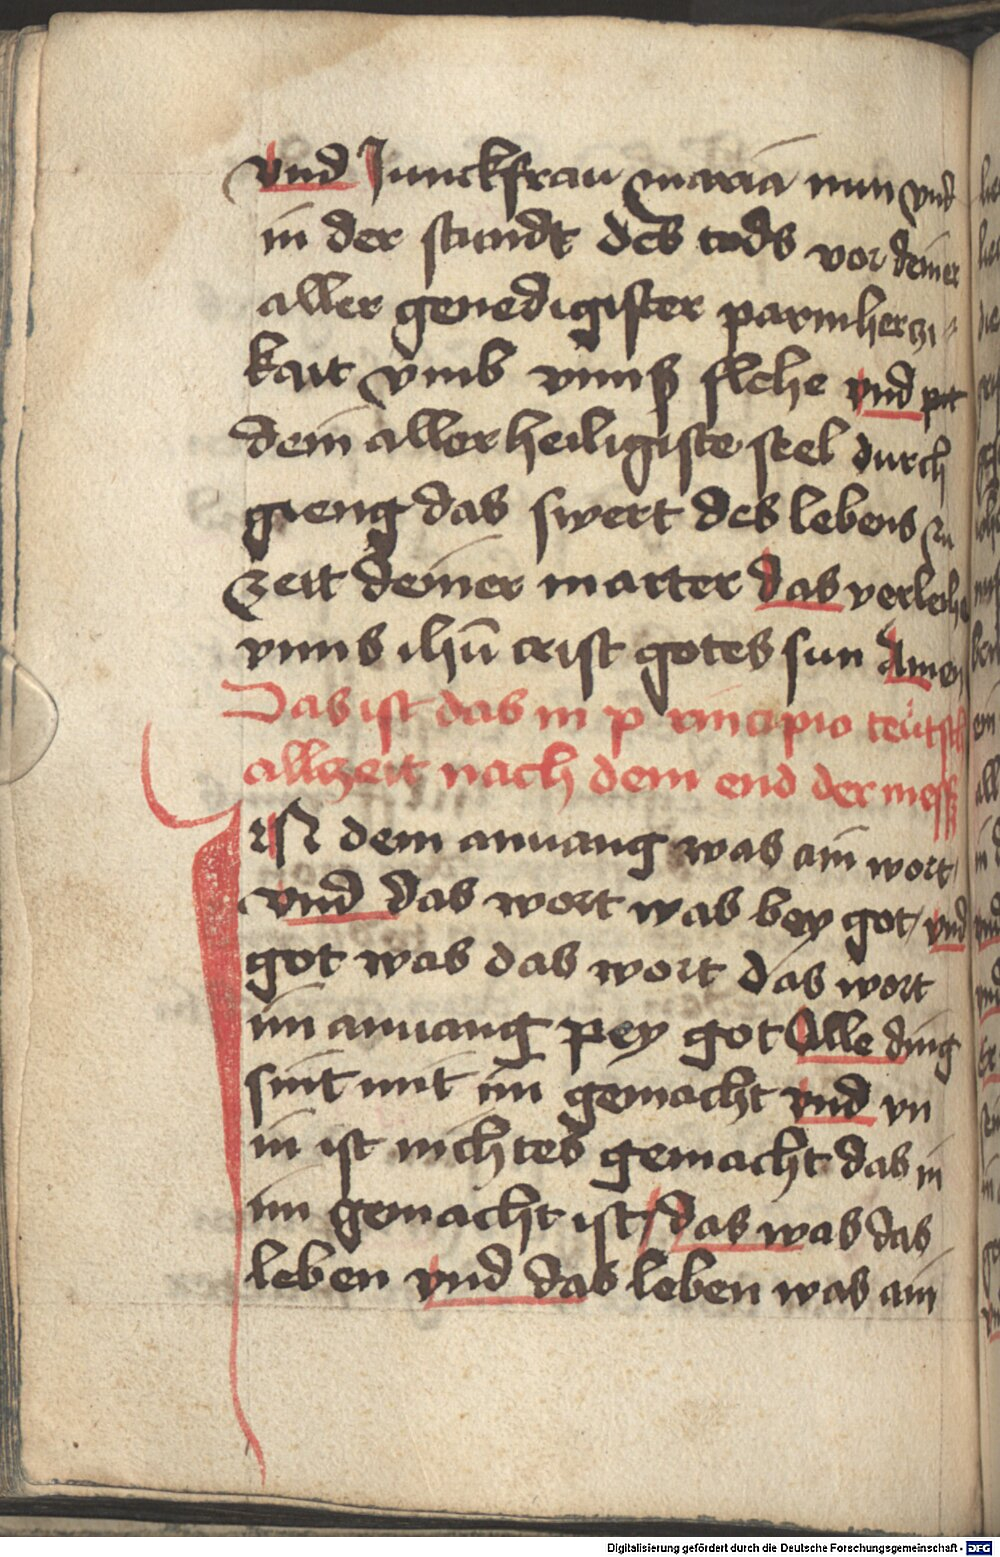 vnd Junckfrau maria nun vnd
in der stundt des tods vor deiner
aller genedigister parmherczi
kait vmb vnnß flehe vnd pit
dein allerheiligiste sel durch
gieng das swert des lebens zu
zeit deiner marter das verleihe
vnns ihū crist gotes sun Amen
Das ist das in principio teütsch
allczeit nach dem end der mesß
IN dem anuang was ain wort
vnd das wort was bey got / vnd
got was das wort das wort
im anuang pey got Alle ding
sint mit im gemacht vnd vn
in ist nichtes gemacht das in
im gemacht ist / das was das
leben vnd das leben was ain
Digitalisierung gefördert durch die Deutsche Forschungsgemeinschaft - DFG